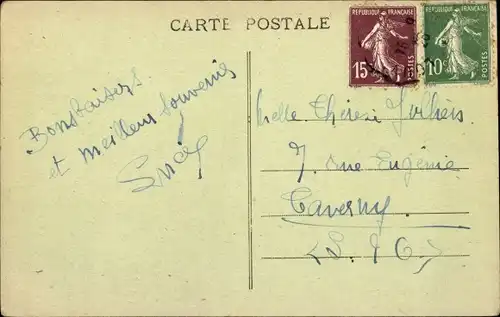 CARTE POSTALE
REPUBLIQUE FRANÇAISE
15c
POSTES
REPUBLIQUE FRANÇAISE
10c
POSTES
Bons baisers
et meilleurs souvenirs
Melle Thérèse
7, rue Eugénie
Taverny
(S. & O.)